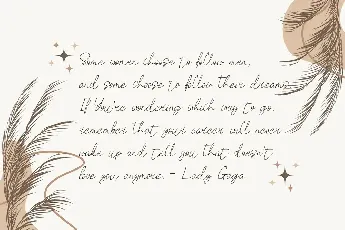 Some women choose to follow men,
and some choose to follow their dreams.
If You're wondering which way to go,
remember that your career will never
wake up and tell you that doesn't
love you anymore. - Lady Gaga